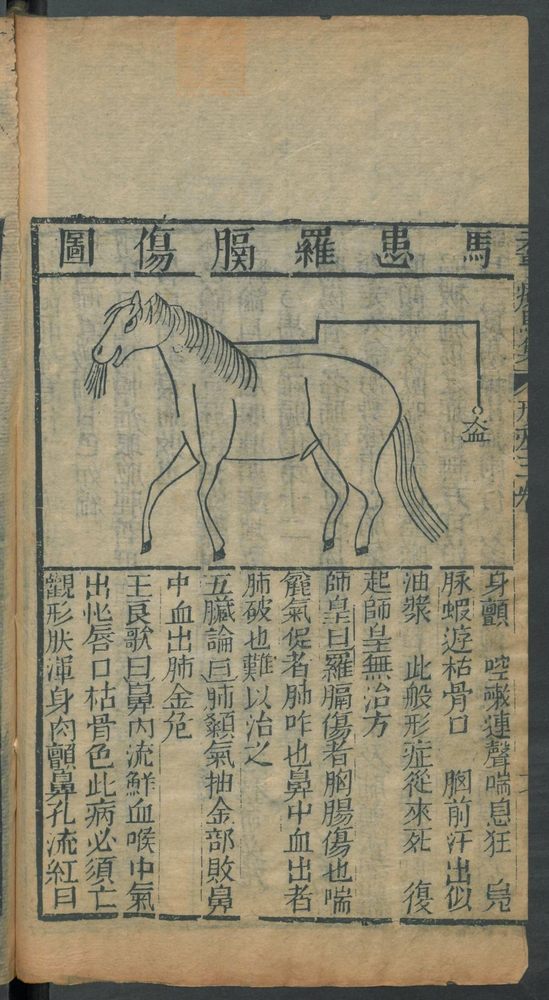 馬患羅膈傷圖
大血
身顫 啌嗽連聲喘息狂 㒵
脉蝦遊枯骨口 胸前汗出似
油漿 此般形症從來死 復
起師皇無治方
師皇曰羅膈傷者胸腸傷也喘
麄氣促者肺咋也鼻中血出者
肺破也難以治之
五臓論曰肺顙氣抽金部敗鼻
中血出肺金危
王良歌曰鼻內流鮮血喉中氣
出忙唇口枯骨色此病必須亡
觀形肷渾身肉顫鼻孔流紅曰